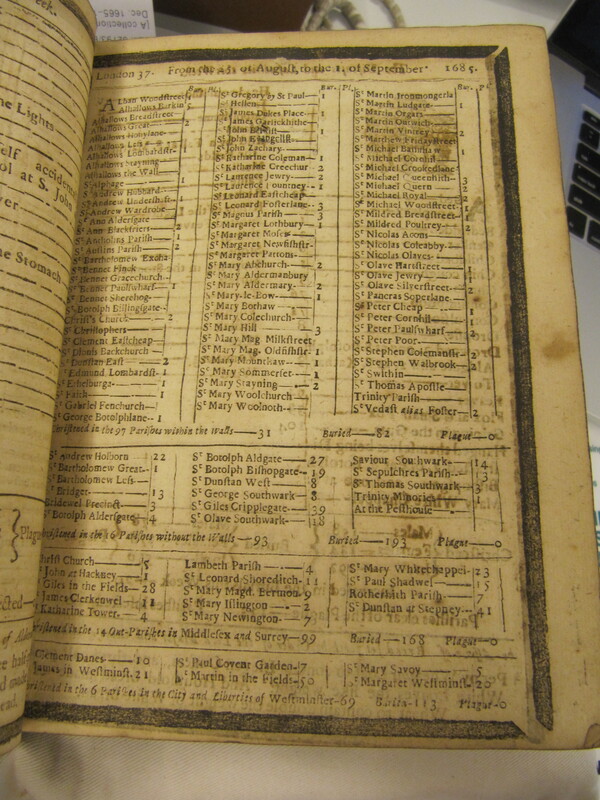 London 37. From the 25. of August, to the 1. of September 1685.
Bur. Pl.
ALban Woodstreet
Alhallows Barkin 5
Alhallows Breadstreet
Alhallows Great 2
Alhallows Honylane
Alhallows Less
Alhallows Lombardstr
Alhallows Stayning
Alhallows the Wall
St Alphage 1
St Andrew Hubbard
St Andrew Undershaft
St Andrew Wardrobe
St Ann Aldersgate
St Ann Blackfriers 2
St Antholins Parish 1
St Austins Parish 2
St Bartholomew Excha
St Bennet Finck
St Bennet Gracechurch
St Bennet Paulswharf 1
St Bennet Sherehog
St Botolph Billingsgate
Christ's Church 2
St Christophers
St Clement Eastcheap
St Dionis Backchurch
St Dunstan East 2
St Edmund Lombardst. 1
St Ethelburga 1
St Faith 1
St Gabriel Fenchurch
St George Botolphlane 1
Bur. Pl.
St Gregory by St Paul 1
St Hellen
St James Dukes Place 1
St James Garlickhithe
St John Baptist
St John Evangelist
St John Zachary
St Katharine Coleman 1
St Katharine Creechur
St Lawrence Jewry 2
St Laurence Pountney 1
St Leonard Eastcheap
St Leonard Fosterlane 3
St Magnus Parish 3
St Margaret Lothbury 1
St Margaret Moses
St Margaret Newfishstr
St Margaret Pattons
St Mary Abchurch 2
St Mary Aldermanbury
St Mary Aldermary 2
St Mary-le-Bow 1
St Mary Bothaw
St Mary Colechurch
St Mary Hill 3
St Mary Mag. Milkstreet
St Mary Mag. Oldfishstr. 1
St Mary Mounthaw 1
St Mary Sommerset 1
St Mary Stayning 2
St Mary Woolchurch
St Mary Woolnoth
Bur. Pl.
St Martin Ironmongerla
St Martin Ludgate 1
St Martin Orgars
St Martin Outwich
St Martin Vintrey 2
St Matthew Fridaystreet
St Michael Bassishaw 1
St Michael Cornhil
St Michael Crookedlane
St Michael Queenhith 3
St Michael Quern 2
St Michael Royal 2
St Michael Woodstreet 1
St Mildred Breadstreet 1
St Mildred Poultrey 2
St Nicolas Acons
St Nicolas Coleabby
St Nicolas Olaves
St Olave Hartstreet 1
St Olave Jewry 1
St Olave Silverstreet 2
St Pancras Soperlane
St Peter Cheap 1
St Peter Cornhil 1
St Peter Paulswharf 2
St Peter Poor
St Stephen Colemanstr 2
St Stephen Walbrook 2
St Swithin
St Thomas Apostle
Trinity Parish
St Vedast alias Foster 2
Christned in the 97 Parishes within the Walls 31 Buried 82 Plague 0
St Andrew Holborn 22
St Bartholomew Great 1
St Bartholomew Less
St Bridget 13
Bridewel Precinct 3
St Botolph Aldersgate 4
St Botolph Aldgate 27
St Botolph Bishopgate 19
St Dunstan West 8
St George Southwark 8
St Giles Cripplegate 39
St Olave Southwark 18
Saviour Southwark 14
St Sepulchres Parish 13
St Thomas Southwark 3
Trinity Minories 1
At the Pesthouse
Christned in the 16 Parishes without the Walls 93 Buried 193 Plague 0
Christ Church 5
John at Hackney 1
Giles in the Fields 28
James Clerkenwel 11
Katharine Tower 4
Lambeth Parish 4
St Leonard Shoreditch 11
St Mary Magd. Bermon 9
St Mary Islington 2
St Mary Newington 7
St Mary Whitechappel 23
St Paul Shadwel 15
Rotherhith Parish 7
St Dunstan at Stepney 41
Christned in the 14 Out-Parishes in Middlesex and Surrey 99 Buried 168 Plague 0
Clement Danes 10
James in Westminst. 21
St Paul Covent Garden 7
St Martin in the Fields 50
St Mary Savoy 5
St Margaret Westminst 20
Christned in the 6 Parishes in the City and Liberties of Westminster 69 Buried 113 Plague 0